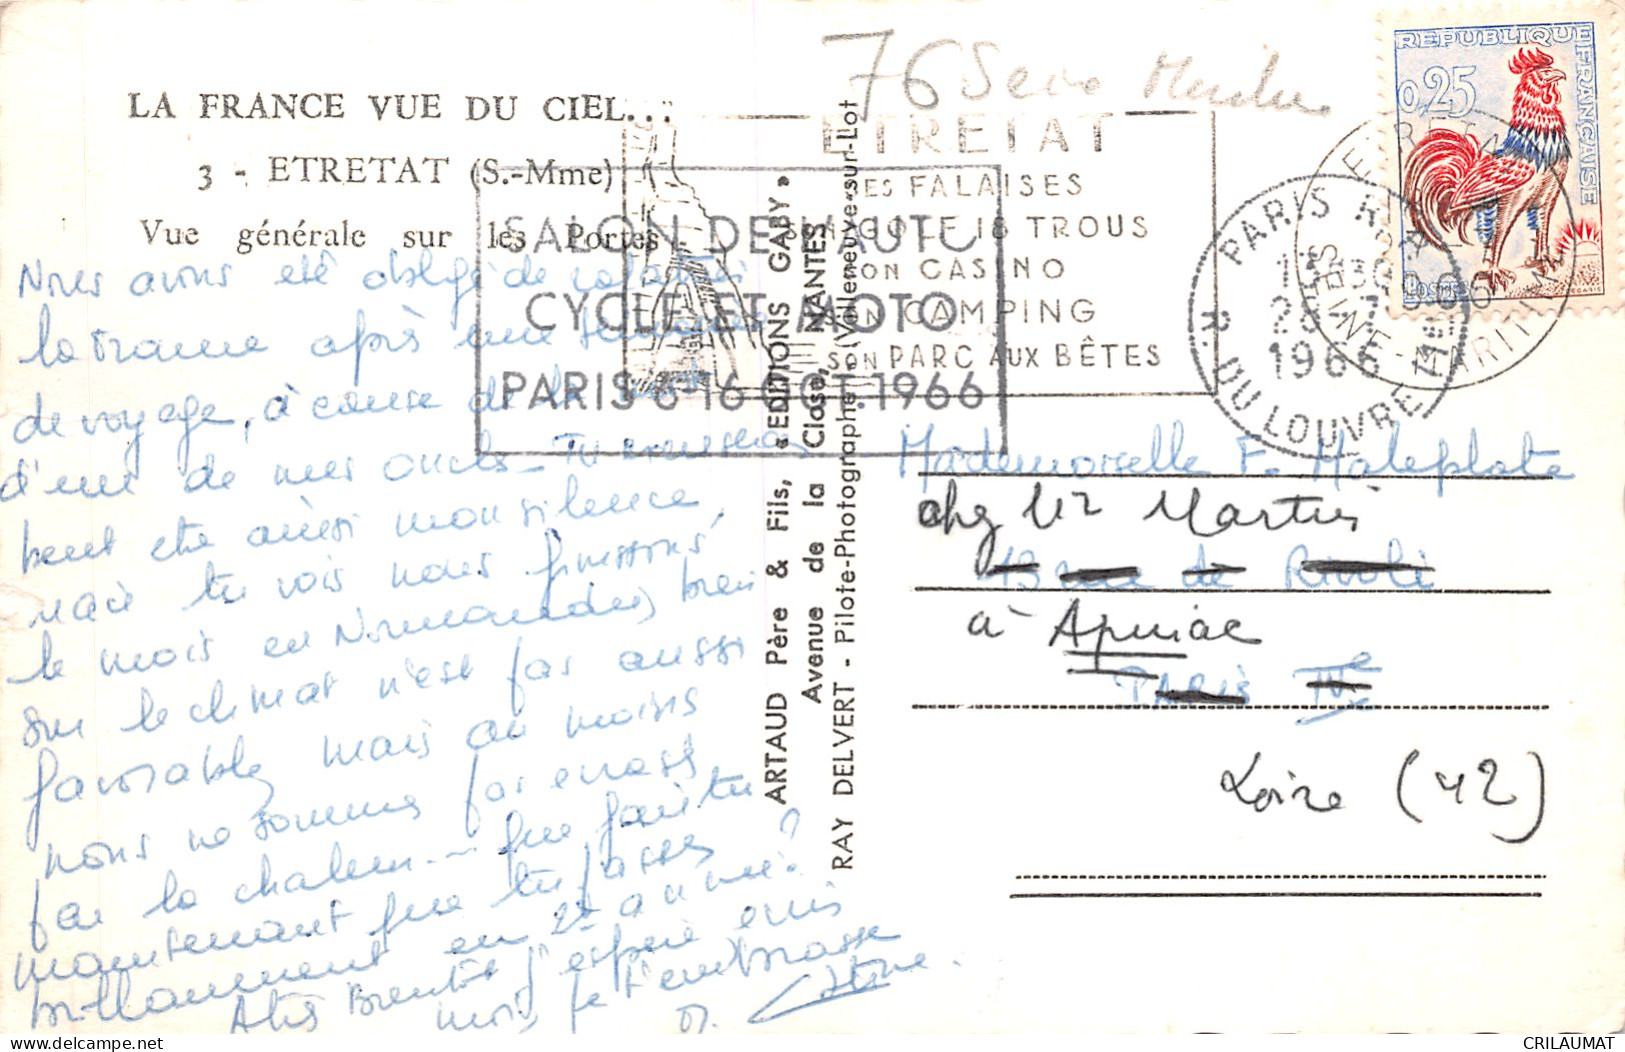 76 Seine Maritime
LA FRANCE VUE DU CIEL...
3 - ETRETAT (S.-Mme)
Vue générale sur les Portes
REPUBLIQUE FRANÇAISE
0,25
POSTES
ETRETAT
SES FALAISES
SON GOLF 18 TROUS
SON CASINO
SON CAMPING
SON PARC AUX BÊTES
SALON DE L'AUTO
CYCLE ET MOTO
PARIS 6-16 OCT. 1966
PARIS R.P.
R. DU LOUVRE
1966
ETRETAT
SEINE-MARITIME
Nous avons été obligé de
après une
de voyage, à cause de
d'un de mes oncles - Tu
peut être ainsi mon silence,
mais tu vois nous finissons
le mois en Normandie, bien
que le climat n'est pas aussi
favorable mais au moins
nous ne sommes pas
par la chaleur -- que fais tu
maintenant que tu
brillamment en 2e année?
Alors Bientôt j'espère
mois je t'embrasse
ARTAUD Père & Fils, «EDITIONS GABY»
Avenue de la Close, NANTES
RAY DELVERT - Pilote-Photographe (Villeneuve-sur-Lot
Mademoiselle F. Maleplate
chez Mr Martin
13 rue de Rivoli
à Apinac
PARIS IVe
Loire (42)
CRILAUMAT